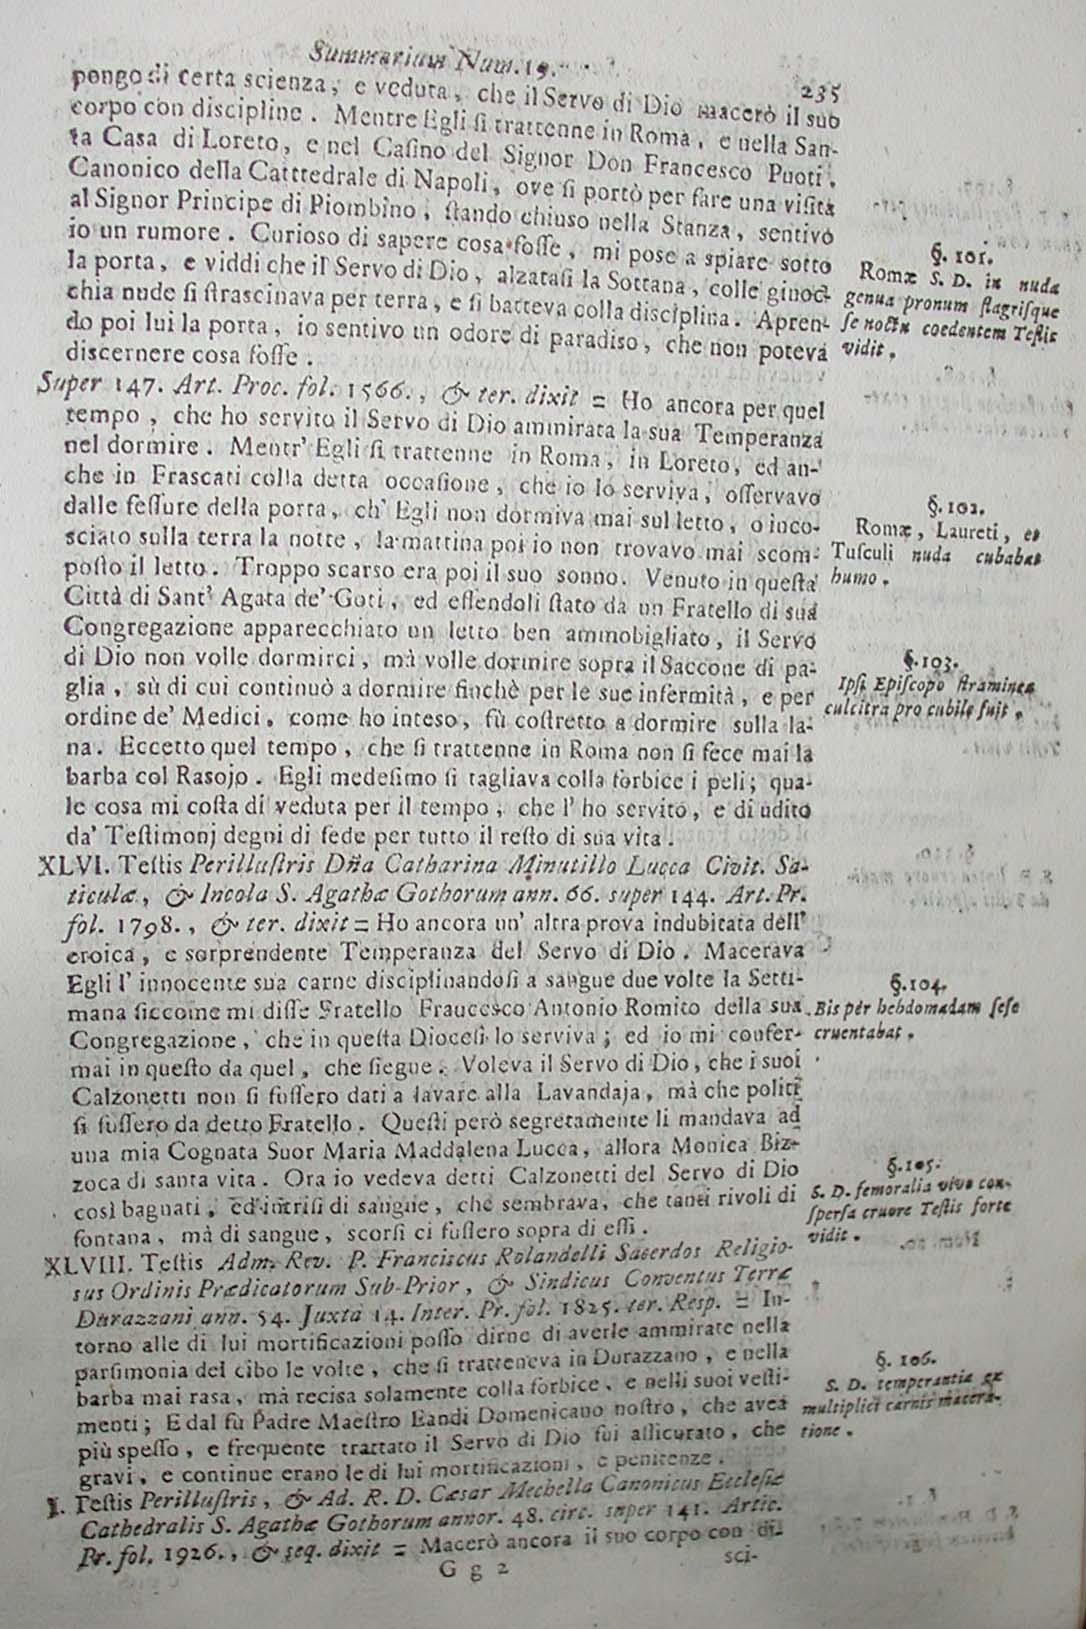 Summarium Num. 19.
235
pongo di certa scienza, e veduta, che il Servo di Dio macerò il suo
corpo con discipline. Mentre Egli ſi trattenne in Roma, e nella San-
ta Casa di Loreto, e nel Caſino del Signor Don Francesco Puoti,
Canonico della Catttedrale di Napoli, ove ſi portò per fare una viſita
al Signor Principe di Piombino, ſtando chiuso nella Stanza, sentivo
io un rumore. Curioso di sapere cosa foſſe, mi pose a spiare sotto
la porta, e viddi che il Servo di Dio, alzataſi la Sottana, colle ginoc-
chia nude ſi ſtrascinava per terra, e ſi batteva colla disciplina. Apren-
do poi lui la porta, io sentivo un odore di paradiso, che non poteva
discernere cosa foſſe.
§. 101.
Romæ S. D. in nuda
genua pronum flagriſque
ſe noctu coedentem Teſtis
vidit.
Super 147. Art. Proc. fol. 1566., & ter. dixit = Ho ancora per quel
tempo, che ho servito il Servo di Dio ammirata la sua Temperanza
nel dormire. Mentr' Egli ſi trattenne in Roma, in Loreto, ed an-
che in Frascati colla detta occaſione, che io lo serviva, oſſervavo
dalle feſſure della porta, ch' Egli non dormiva mai sul letto, o inco-
sciato sulla terra la notte, la mattina poi io non trovavo mai scom-
poſto il letto. Troppo scarso era poi il suo sonno. Venuto in queſta
Città di Sant' Agata de' Goti, ed eſſendoli ſtato da un Fratello di sua
Congregazione apparecchiato un letto ben ammobigliato, il Servo
di Dio non volle dormirci, mà volle dormire sopra il Saccone di pa-
glia, sù di cui continuò a dormire finchè per le sue infermità, e per
ordine de' Medici, come ho inteso, fù coſtretto a dormire sulla la-
na. Eccetto quel tempo, che ſi trattenne in Roma non ſi fece mai la
barba col Rasojo. Egli medeſimo ſi tagliava colla forbice i peli; qua-
le cosa mi coſta di veduta per il tempo, che l' ho servito, e di udito
da' Teſtimonj degni di fede per tutto il reſto di sua vita.
§. 102.
Romæ, Laureti, et
Tuſculi nuda cubabat
humo.
§. 103.
Ipſi Epiſcopo ſtraminea
culcitra pro cubile fuit.
XLVI. Teſtis Perilluſtris Dña Catharina Minutillo Lucca Civit. Sa-
ticulæ, & Incola S. Agathæ Gothorum ann. 66. super 144. Art. Pr.
fol. 1798., & ter. dixit = Ho ancora un' altra prova indubitata dell'
eroica, e sorprendente Temperanza del Servo di Dio. Macerava
Egli l' innocente sua carne disciplinandoſi a sangue due volte la Setti-
mana ſiccome mi diſſe Fratello Francesco Antonio Romito della sua
Congregazione, che in queſta Dioceſi lo serviva; ed io mi confer-
mai in queſto da quel, che ſiegue. Voleva il Servo di Dio, che i suoi
Calzonetti non ſi fuſſero dati a lavare alla Lavandaja, mà che politi
ſi fuſſero da detto Fratello. Queſti però segretamente li mandava ad
una mia Cognata Suor Maria Maddalena Lucca, allora Monica Biz-
zoca di santa vita. Ora io vedeva detti Calzonetti del Servo di Dio
così bagnati, ed intriſi di sangue, che sembrava, che tanti rivoli di
fontana, mà di sangue, scorſi ci fuſſero sopra di eſſi.
§. 104.
Bis per hebdomadam ſeſe
cruentabat.
§. 105.
S. D. femoralia vivo con-
ſperſa cruore Teſtis forte
vidit.
XLVIII. Teſtis Adm. Rev. P. Franciscus Rolandelli Sacerdos Religio-
sus Ordinis Prædicatorum Sub-Prior, & Sindicus Conventus Terræ
Durazzani ann. 54. Juxta 14. Inter. Pr. fol. 1825. ter. Resp. = In-
torno alle di lui mortificazioni poſſo dirne di averle ammirate nella
parſimonia del cibo le volte, che ſi tratteneva in Durazzano, e nella
barba mai rasa, mà recisa solamente colla forbice, e nelli suoi veſti-
menti; E dal fù Padre Maeſtro Landi Domenicano noſtro, che avea
più speſſo, e frequente trattato il Servo di Dio fui aſſicurato, che
gravi, e continue erano le di lui mortificazioni, e penitenze.
§. 106.
S. D. temperantia ex
multiplici carnis macera-
tione.
I. Teſtis Perilluſtris, & Ad. R. D. Cæsar Mechella Canonicus Eccleſiæ
Cathedralis S. Agathæ Gothorum annor. 48. circ. super 141. Artic.
Pr. fol. 1926., & seq. dixit = Macerò ancora il suo corpo con di-
G g 2
sci-